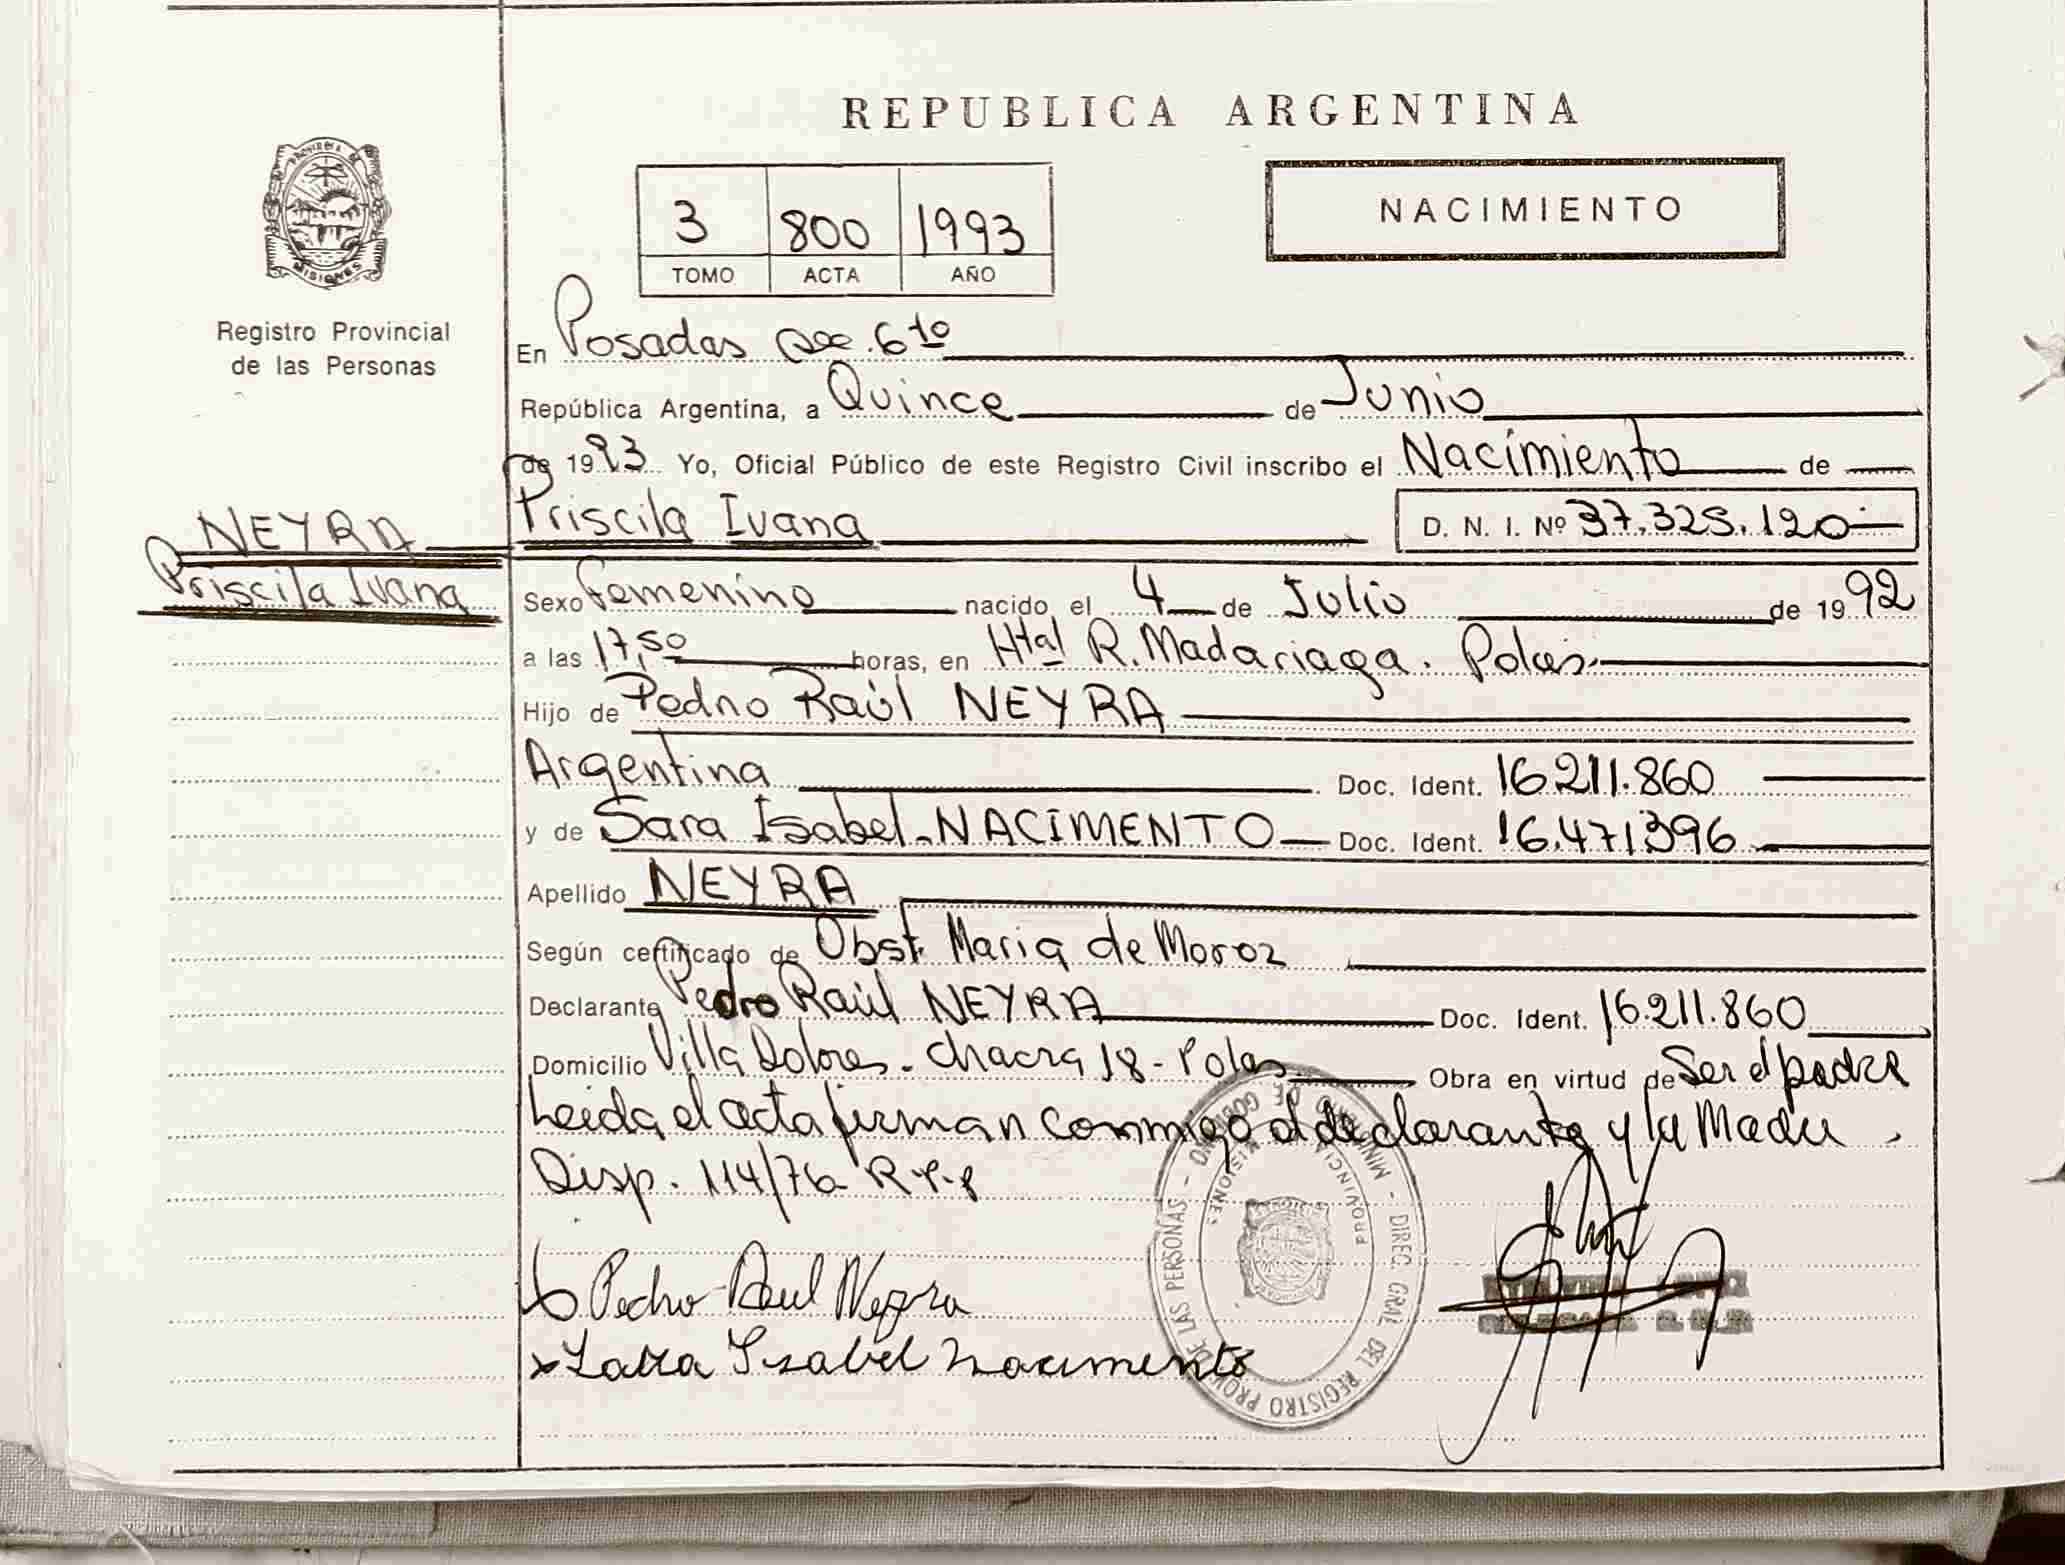 REPUBLICA ARGENTINA
PROVINCIA DE
MISIONES
Registro Provincial
de las Personas
3 800 1993
TOMO ACTA AÑO
NACIMIENTO
En Posadas Sec. 6to
República Argentina, a Quince de Junio
de 1993 Yo, Oficial Público de este Registro Civil inscribo el Nacimiento de
NEYRA
Priscila Ivana
Priscila Ivana D. N. I. Nº 37.325.120
Sexo Femenino nacido el 4 de Julio de 1992
a las 17,50 horas, en Htal R. Madariaga. Pdas.
Hijo de Pedro Raúl NEYRA
Argentina Doc. Ident. 16.211.860
y de Sara Isabel NACIMENTO Doc. Ident. 16.471396
Apellido NEYRA
Según certificado de Obst. Maria de Moroz
Declarante Pedro Raúl NEYRA Doc. Ident. 16.211.860
Domicilio Villa Dolores - chacra 18 - Pdas Obra en virtud de Ser el padre
Leida el acta firman conmigo el declarante y la Madre.
Disp. 114/76 R.P.P
Pedro Raul Neyra
x Sara Isabel Nacimento
MINISTERIO DE GOBIERNO - DIREC. GRAL. DEL REGISTRO PROV. DE LAS PERSONAS -
PROVINCIA MISIONES